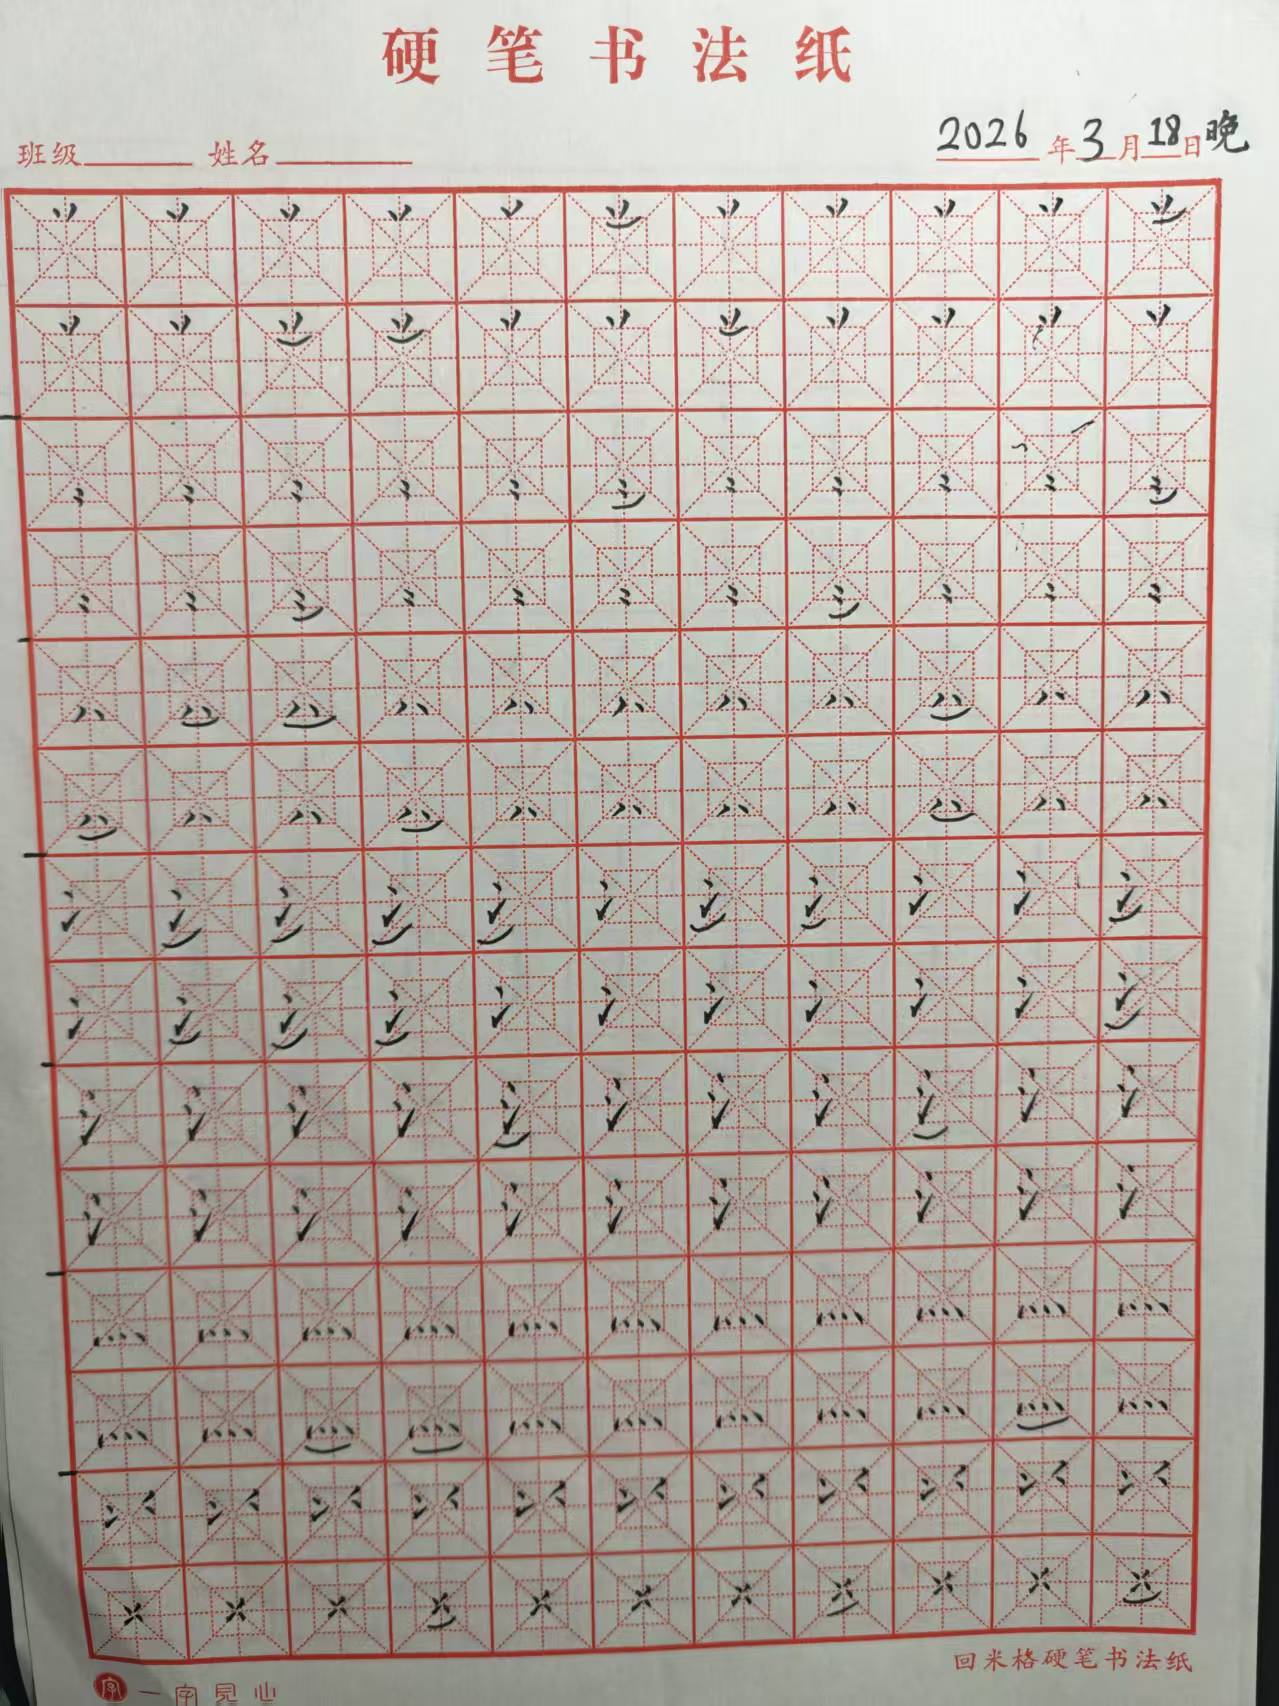 硬笔书法纸
班级 姓名 2026年3月18日晚
回米格硬笔书法纸
字 一字見心